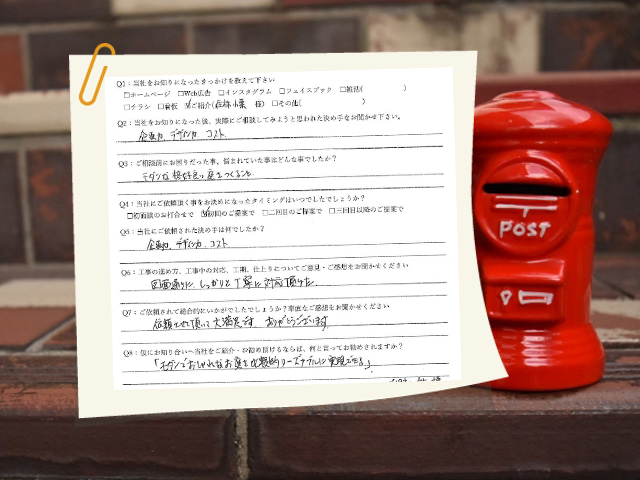 Q1：当社をお知りになったきっかけを教えて下さい
□ホームページ □Web広告 □インスタグラム □フェイスブック □雑誌( )
□チラシ □看板 ☑ご紹介( 様) □その他( )
Q2：当社をお知りになった後、実際にご相談してみようと思われた決め手をお聞かせ下さい。
企画力、デザイン力、コスト
Q3：ご相談前にお困りだった事、悩まれていた事はどんな事でしたか？
モダンな格好良い庭をつくること
Q4：当社にご依頼頂く事をお決めになったタイミングはいつでしたでしょうか？
□初面談のお打合せで ☑初回のご提案で □二回目のご提案で □三回目以降のご提案で
Q5：当社にご依頼された決め手は何でしたか？
企画力、デザイン力、コスト
Q6：工事の進め方、工事中の対応、工期、仕上りについてご意見・ご感想をお聞かせください
図面通りに、しっかりと丁寧に対応頂けた。
Q7：ご依頼されて総合的にいかがでしたでしょうか？率直なご感想をお聞かせください
依頼させて頂いて大満足です ありがとうございます
Q8：仮にお知り合いへ当社をご紹介・お勧め頂けるならば、何と言ってお勧めされますか？
「モダンでおしゃれなお庭を比較的リーズナブルに実現できる。」
POST